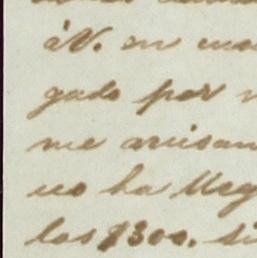 á V. en
gado por
me avisan
no ha lleg
los $300. si